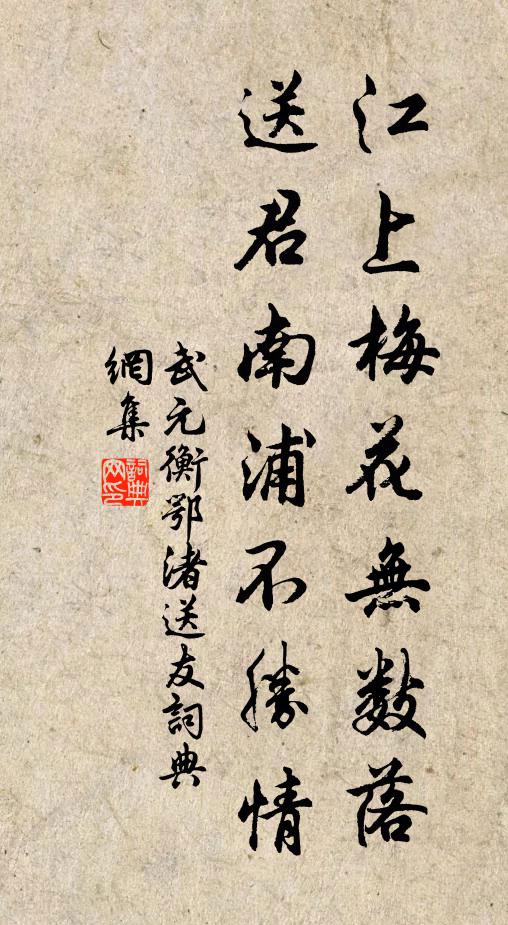 江上梅花無数落
送君南浦不勝情
武元衡鄂渚送友詞典
網集
詞典網印